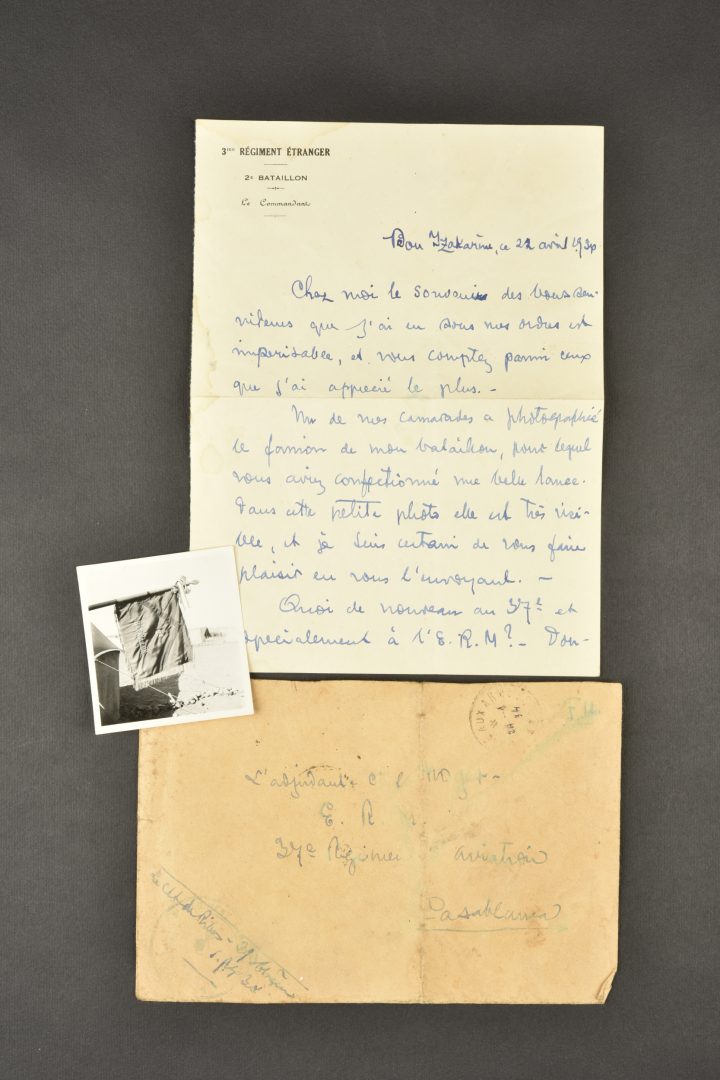 3me RÉGIMENT ÉTRANGER
2e BATAILLON
Le Commandant
Bou Izakarine, ce 22 avril
Chez moi le souvenir des bons ser-
viteurs que j'ai eu sous mes ordres est
imperissable, et vous comptez parmi ceux
que j'ai apprecié le plus. -
Un de mes camarades a photographié
le fanion de mon bataillon, pour lequel
vous aviez confectionné une belle lance.
Dans cette petite photo elle est très visi-
ble, et je suis certain de vous faire
plaisir en vous l'envoyant. -
Quoi de nouveau au 37e et
specialement à l'E.R.M? - Don-
L'adjudant
E. R.
37e aviation
Casablanca